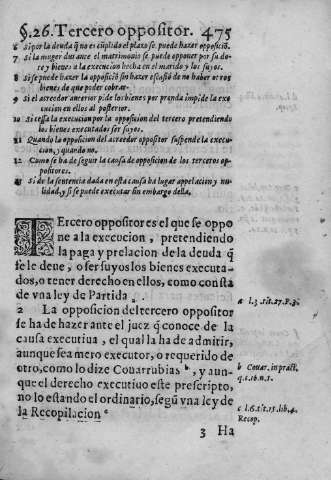 §.26. Tercero oppositor. 475
6 Si por la deuda q̃ no es cũplido el plazo se puede hazer opposiciõ.
7 Si la muger durante el matrimonio se puede opponer por su do-
te y bienes a la execucion hecha en el marido y los suyos.
8 Si se puede hazer la opposiciõ sin hazer escusiõ de no haber otros
bienes de que poder cobrar.
9 Si el acreedor anterior pide los bienes por prenda impide la exe
cucion en ellos al posterior.
10 Si cessa la execucion por la opposicion del tercero pretendiendo
los bienes executados ser suyos.
11 Quando la opposicion del acreedor oppositor suspende la execu-
cion, y quando no.
12 Como se ha de seguir la causa de opposicion de los terceros op-
positores.
13 Si de la sentencia dada en esta causa ha lugar appelacion y nu-
lidad, y si se puede executar sin embargo della.
TErcero oppositor es el que se oppo
ne a la execucion, pretendiendo
la paga y prelacion de la deuda q̃
se le deue, o ser suyos los bienes executa-
dos, o tener derecho en ellos, como consta
de vna ley de Partida a.
a l.3. tit.27.P.3.
2 La opposicion del tercero oppositor
se ha de hazer ante el juez q̃ conoce de la
causa executiua, el qual la ha de admitir,
aunque sea mero executor, o requerido de
otro, como lo dize Couarrubias b, y aun-
b Couar. in pract.
q.16.n.1.
que el derecho executiuo este prescripto,
no lo estando el ordinario, segũ vna ley de
la Recopilacion c
c l.6.tit.15.lib.4.
Recop.
3 Ha